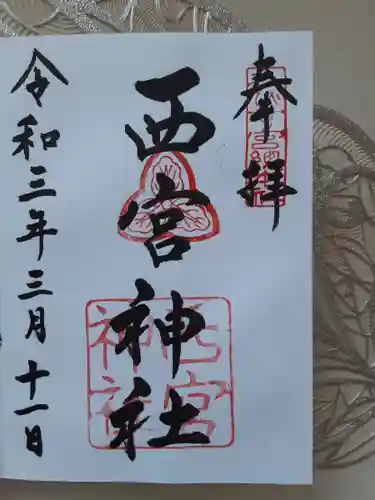 奉拝
西宮神社
西宮神社
令和三年三月十一日